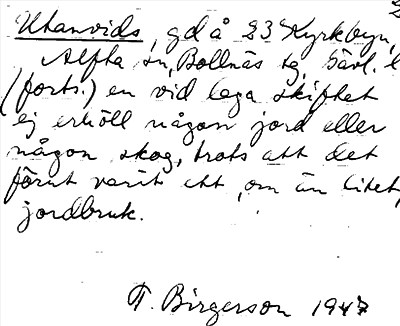 Utanvids, gd å 23 Kyrkbyn,
Alfta sn, Bollnäs tg, Gävl. l
(forts.) en vid laga skiftet
ej erhöll någon jord eller
någon skog, trots att det
förut varit ett, om än litet,
jordbruk.
T. Birgerson 1947